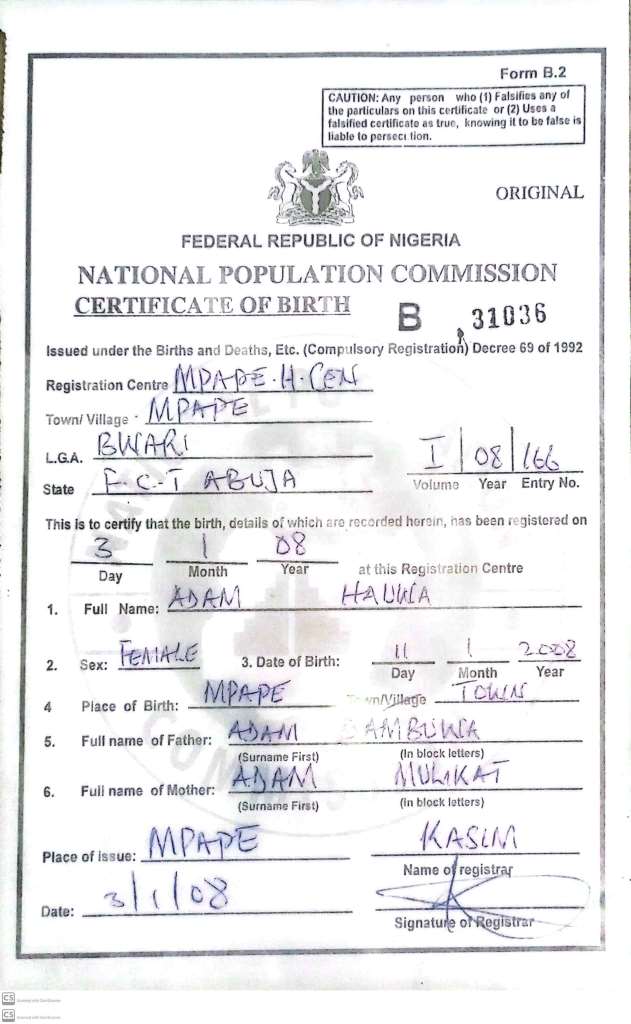 Form B.2
CAUTION: Any person who (1) Falsifies any of
the particulars on this certificate or (2) Uses a
falsified certificate as true, knowing it to be false is
liable to persecution.
ORIGINAL
FEDERAL REPUBLIC OF NIGERIA
NATIONAL POPULATION COMMISSION
CERTIFICATE OF BIRTH B 31036
Issued under the Births and Deaths, Etc. (Compulsory Registration) Decree 69 of 1992
Registration Centre MPAPE·H·CEN
Town/ Village · MPAPE
L.G.A. BWARI
State F.C.T ABUJA
I 08 166
Volume Year Entry No.
This is to certify that the birth, details of which are recorded herein, has been registered on
3 1 08
Day Month Year at this Registration Centre
1. Full Name: ADAM HAUWA
2. Sex: FEMALE 3. Date of Birth: 11 1 2008
Day Month Year
4 Place of Birth: MPAPE Town/Village TOWN
5. Full name of Father: ADAM
(Surname First) (In block letters)
6. Full name of Mother: ADAM MULIKAT
(Surname First) (in block letters)
Place of issue: MPAPE KASIM
Name of registrar
Date: 3/1/08
Signature of Registrar
CS Scanned with CamScanner
CS Scanned with CamScanner